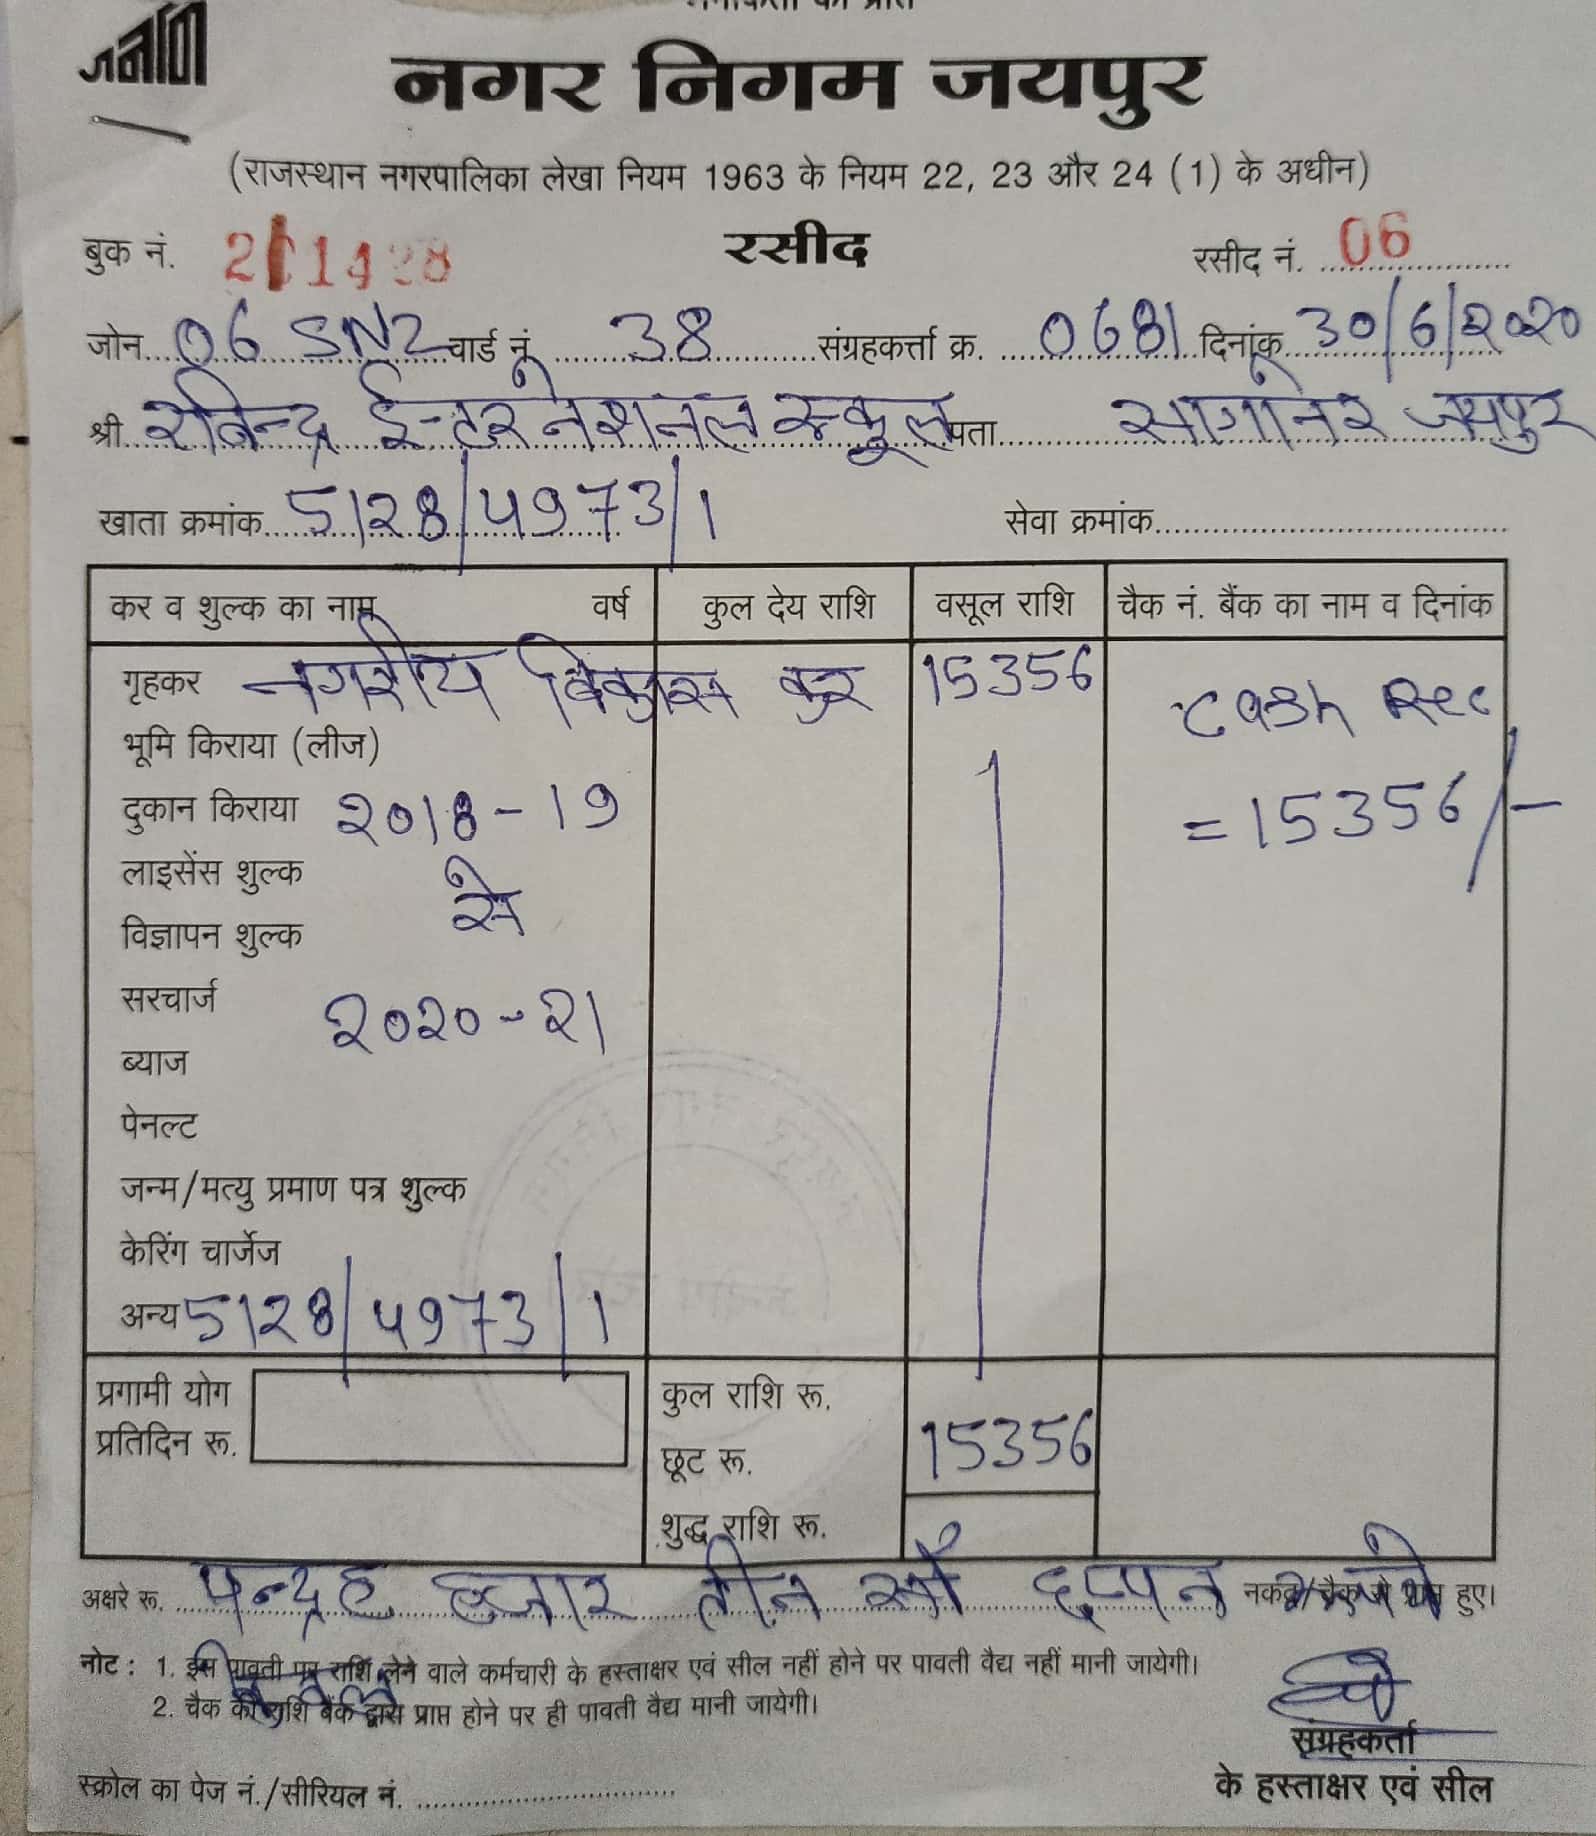 नगर निगम जयपुर
(राजस्थान नगरपालिका लेखा नियम 1963 के नियम 22, 23 और 24 (1) के अधीन)
बुक नं. रसीद रसीद नं. 06
जोन 06 SNZ वार्ड नं 38 संग्रहकर्त्ता क्र. 0681 दिनांक 30/6/2020
श्री रविन्द्र ईन्टरनेशनल स्कूल पता सागांनेर जयपुर
खाता क्रमांक 5128/4973/1 सेवा क्रमांक
कर व शुल्क का नाम वर्ष कुल देय राशि वसूल राशि चैक नं. बैंक का नाम व दिनांक
गृहकर नगरीय विकास कर 15356 Cash Rec
भूमि किराया (लीज)
दुकान किराया 2018-19 =15356/-
लाइसेंस शुल्क
से
विज्ञापन शुल्क
सरचार्ज 2020-21
ब्याज
पेनल्ट
जन्म/मत्यु प्रमाण पत्र शुल्क
केरिंग चार्जेज
अन्य 5128/4973/1
प्रगामी योग कुल राशि रू.
प्रतिदिन रू. 15356
छूट रू.
शुद्ध राशि रू.
अक्षरे रू. पन्द्रह हजार तीन सौ छप्पन नकद/चैक से प्राप्त हुए।
नोट : 1. इस पावती पर राशि लेने वाले कर्मचारी के हस्ताक्षर एवं सील नहीं होने पर पावती वैद्य नहीं मानी जायेगी।
2. चैक की राशि बैंक द्वारा प्राप्त होने पर ही पावती वैद्य मानी जायेगी।
संग्रहकर्ता
स्क्रोल का पेज नं./सीरियल नं. के हस्ताक्षर एवं सील